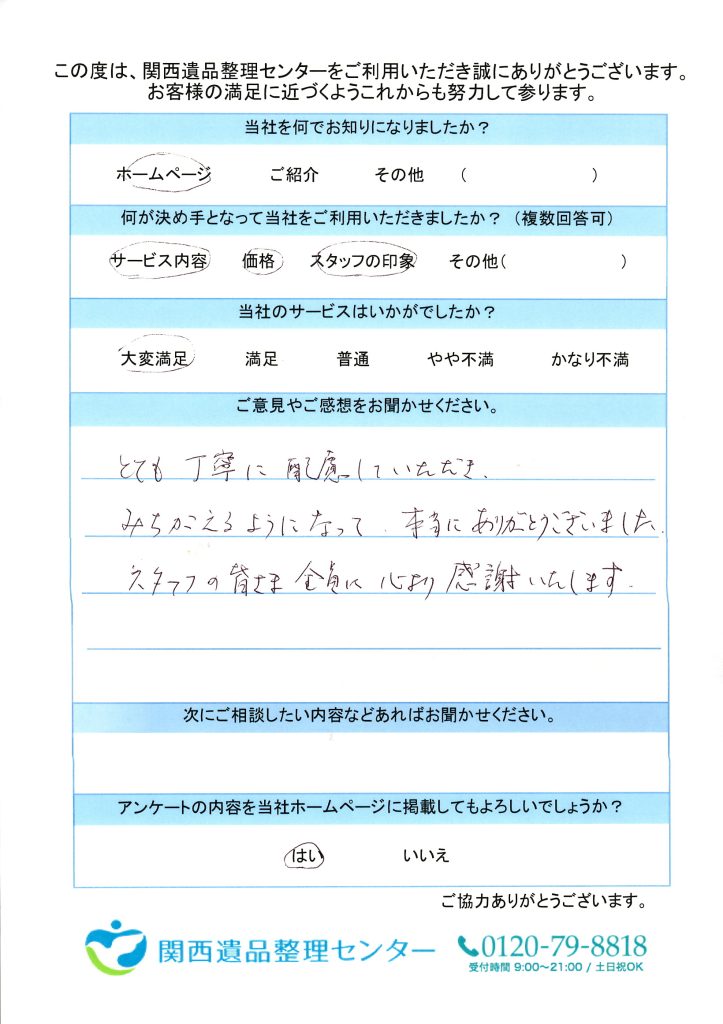 この度は、関西遺品整理センターをご利用いただき誠にありがとうございます。
お客様の満足に近づくようこれからも努力して参ります。
当社を何でお知りになりましたか？
ホームページ ご紹介 その他 （ ）
何が決め手となって当社をご利用いただきましたか？（複数回答可）
サービス内容 価格 スタッフの印象 その他（ ）
当社のサービスはいかがでしたか？
大変満足 満足 普通 やや不満 かなり不満
ご意見やご感想をお聞かせください。
とても 丁寧に 配慮していただき、
みちがえるようになって、本当にありがとうございました。
スタッフの皆さま 全員に 心より 感謝いたします。
次にご相談したい内容などあればお聞かせください。
アンケートの内容を当社ホームページに掲載してもよろしいでしょうか？
はい いいえ
ご協力ありがとうございます。
関西遺品整理センター 0120-79-8818
受付時間 9:00～21:00 / 土日祝OK